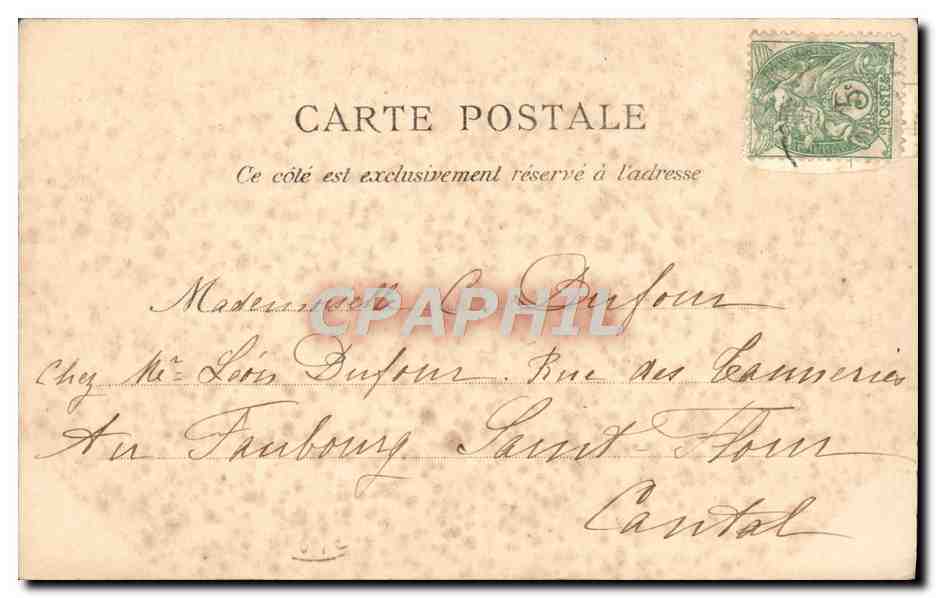 5c
POSTES
CARTE POSTALE
Ce côté est exclusivement réservé à l'adresse
Mademoiselle C. Dufour
CPAPHIL
Chez Mr Léon Dufour. Rue des Tanneries
Au Faubourg Saint-Flour
Cantal